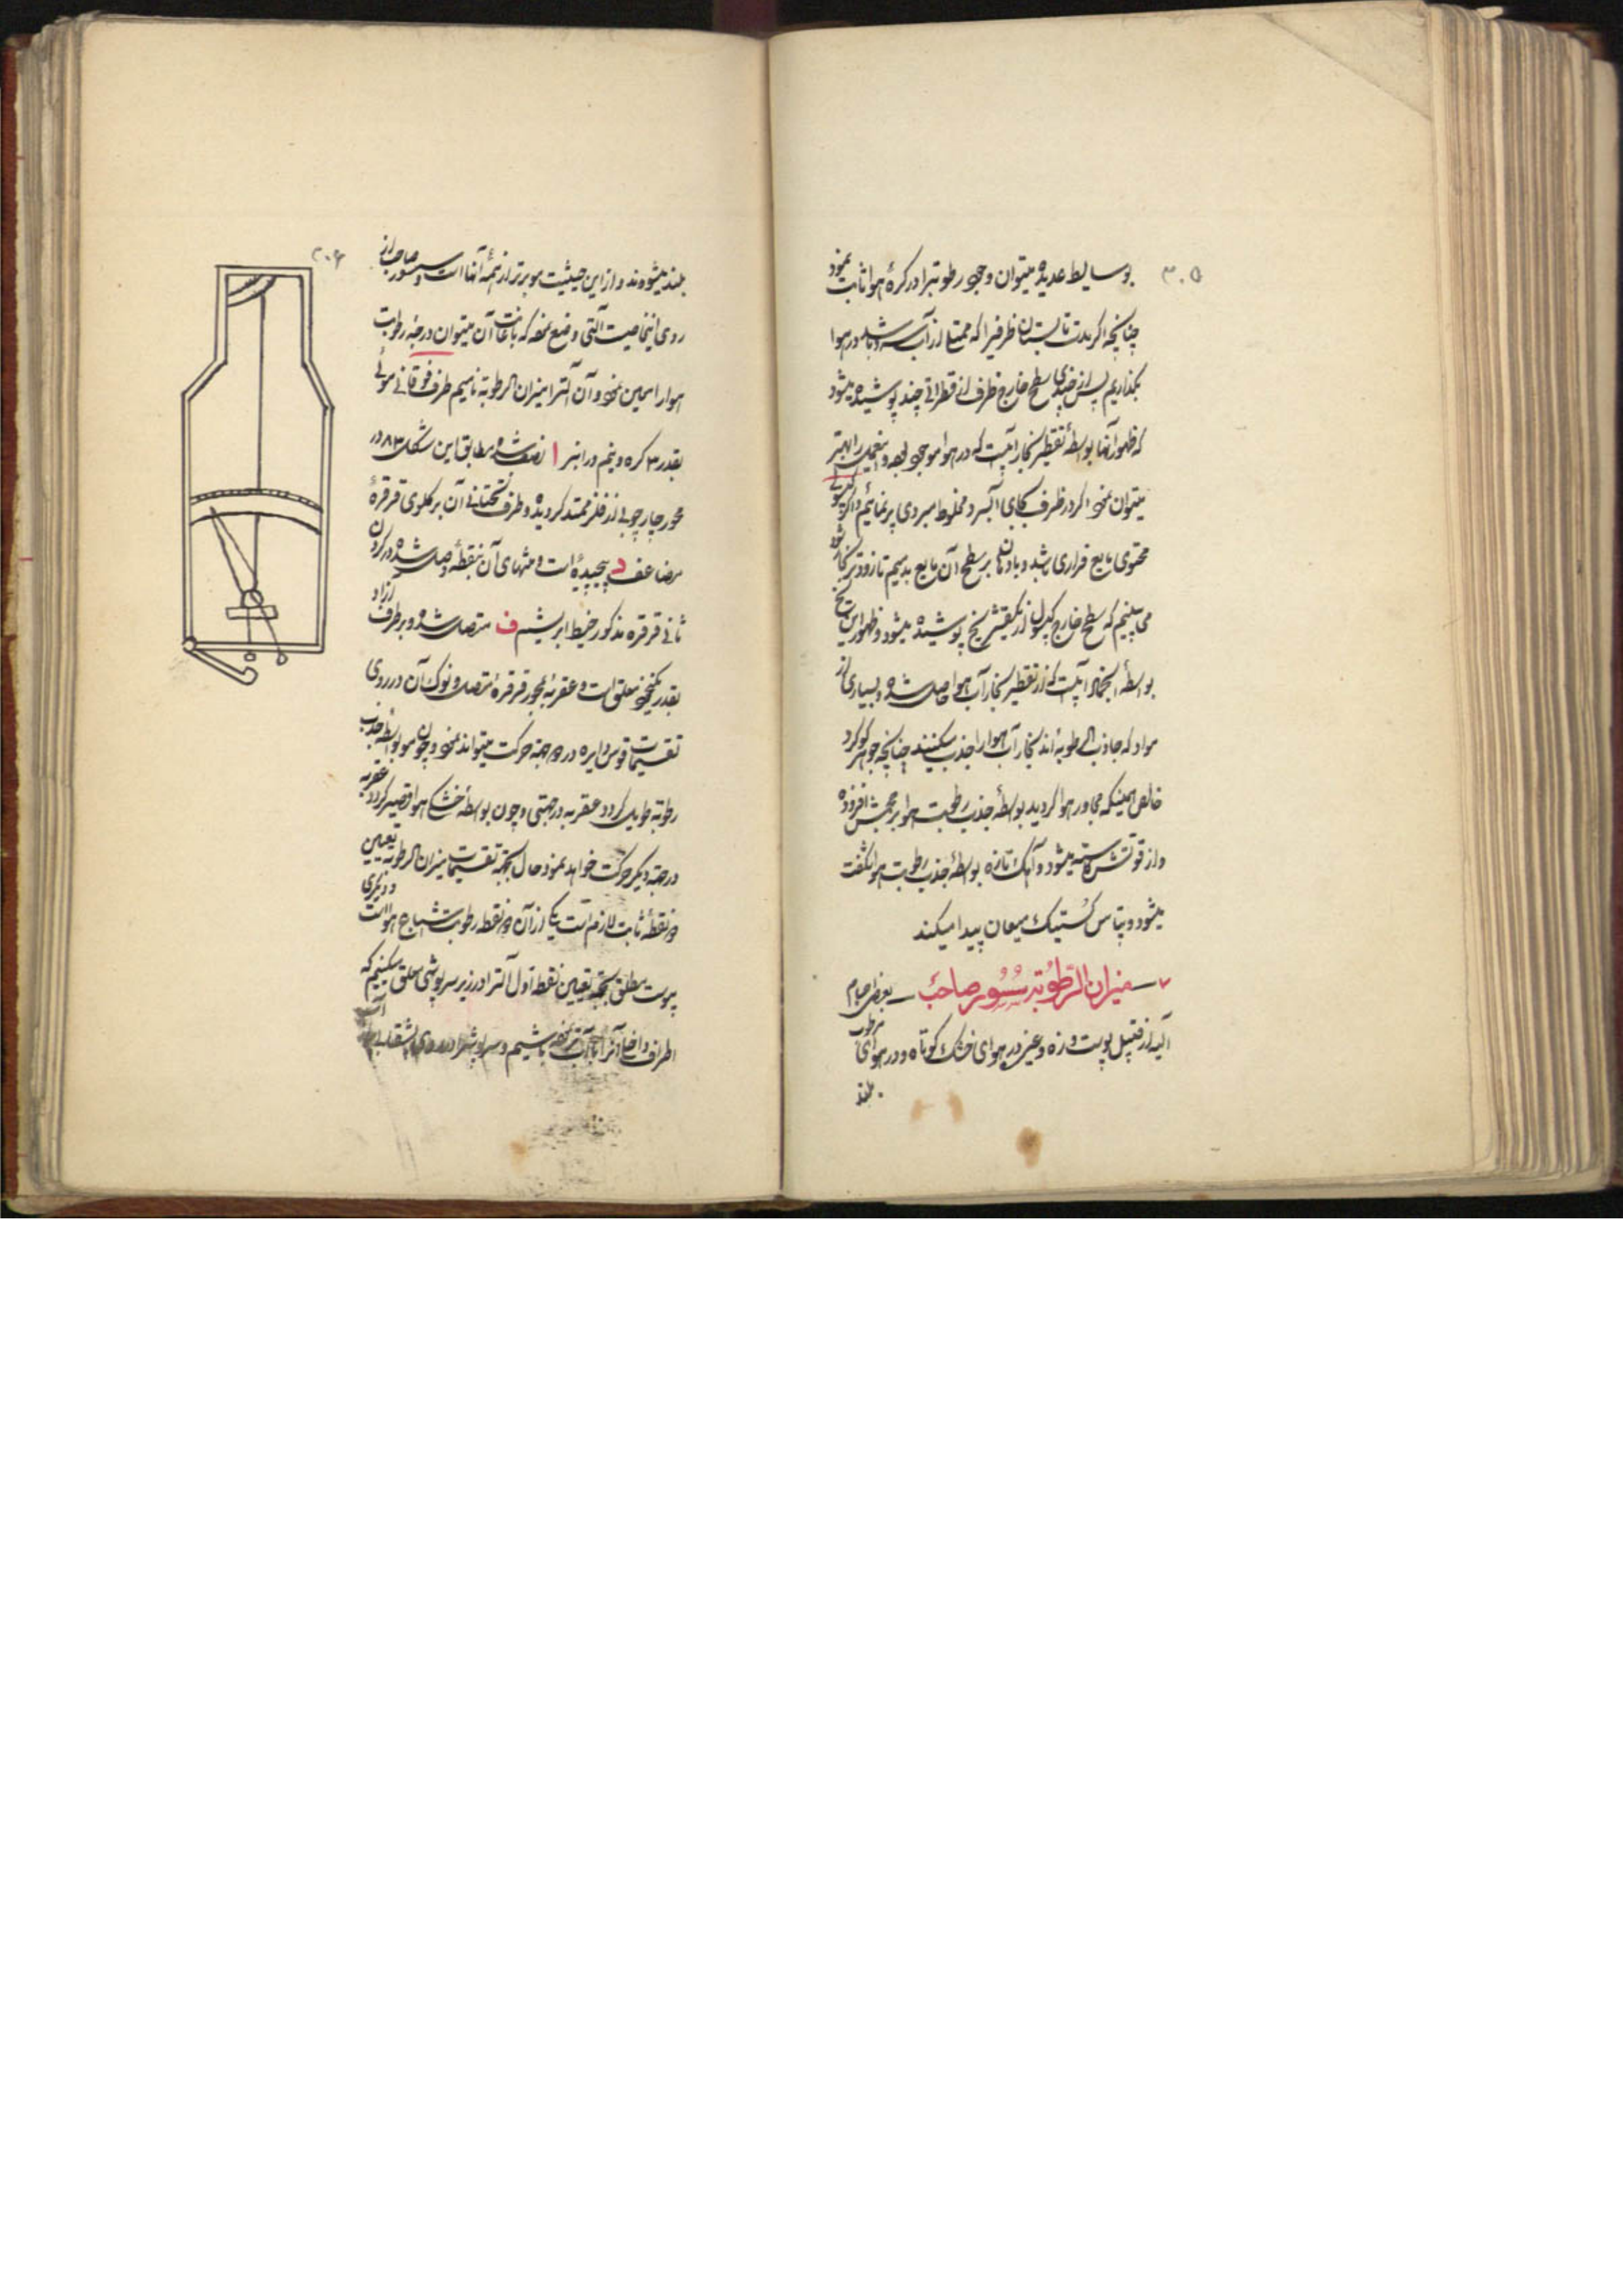 ۳۰۵
بوسایط عدیده میتوان وجود رطوبترا در کرهٔ هوا ثابت نمود
چنانچه اگر بمدت تابستان ظرفیرا که ممتلی از آب سرد باشد در هوا
بگذاریم پس از چندی سطح خارج ظرف از قطراتی چند پوشیده میشود
که ظهور آنها بواسطهٔ تقطیر بخار آبیست که در هوا موجود بوده و اینعمل را بهتر
میتوان نمود اگر در ظرف بجای آب سرد مخلوط مبردی پر نمائیم و اگر کپسولی
محتوی مایع فراری باشد و باد بر سطح آن مایع بدمیم تا زودتر بخار شود
می بینیم که سطح خارج کپسول از یکقشر یخ پوشیده میشود و ظهور این یخ
بواسطهٔ انجماد آبیست که از تقطیر بخار آب هوا حاصل شده و بسیاری از
مواد که جاذب الرطوبه اند بخار آب هوا را جذب میکنند چنانچه جوهر گوگرد
خالص همینکه مجاور هوا گردید بواسطهٔ جذب رطوبت هوا بر حجمش افزوده
و از قوتش کاسته میشود و آهک تازه بواسطهٔ جذب رطوبت هوا شکفت
میشود و پتاس کُستیک میعان پیدا میکند
۷ میزان الرّطوبه سُسُور صاحب بعضی اجسام
آلیه از قبیل پوست و زه و غیره در هوای خشک کوتاه و در هوای مرطوب
بلند
۳۰۶
بلند میشوند و از این حیثیت مو برتر از همهٔ آنها است و سسور صاحب از
روی اینخاصیت آلتی وضع نموده که باعانت آن میتوان درجهٔ رطوبات
هوا را معین نمود و آن آلترا میزان الرطوبه نامیم طرف فوقانی موئی
بقدر ۳ گره و نیم در انبر ا نصب شده مطابق این شکل ۸۳ در
محور چارچوبی از فلز ممتد گردیده و طرف تحتانی آن بر گلوی قرقرهٔ
مضاعف د پیچیده است و منتهای آن بنقطهٔ وصل شده در گردن
ثانی قرقره مذکور خیط ابریشم ف متصل شده و بر طرف
بقدر یکنخود معلق است و عقربهٔ بمحور قرقره متصل و نوک آن در روی
تقسیمات قوس دایره در دو جهة حرکت میتواند نمود و چون مو بواسطهٔ جذب
رطوبة طویل گردد عقربه در جهتی و چون بواسطهٔ خشکی هوا قصیر گردد عقربه
در جهة دیگر حرکت خواهد نمود حال بجهة تقسیمات میزان الرطوبه تعیین
دو نقطهٔ ثابت لازم است یکی از آن دو نقطه رطوبت اشباع هوا است و دیگری
یبوست مطلق بجهة تعیین نقطه اول آلترا در زیر سرپوشی معلق میکنیم که
اطراف داخل آنرا با آب تر نموده باشیم و سرپوش را در روی بشقاب